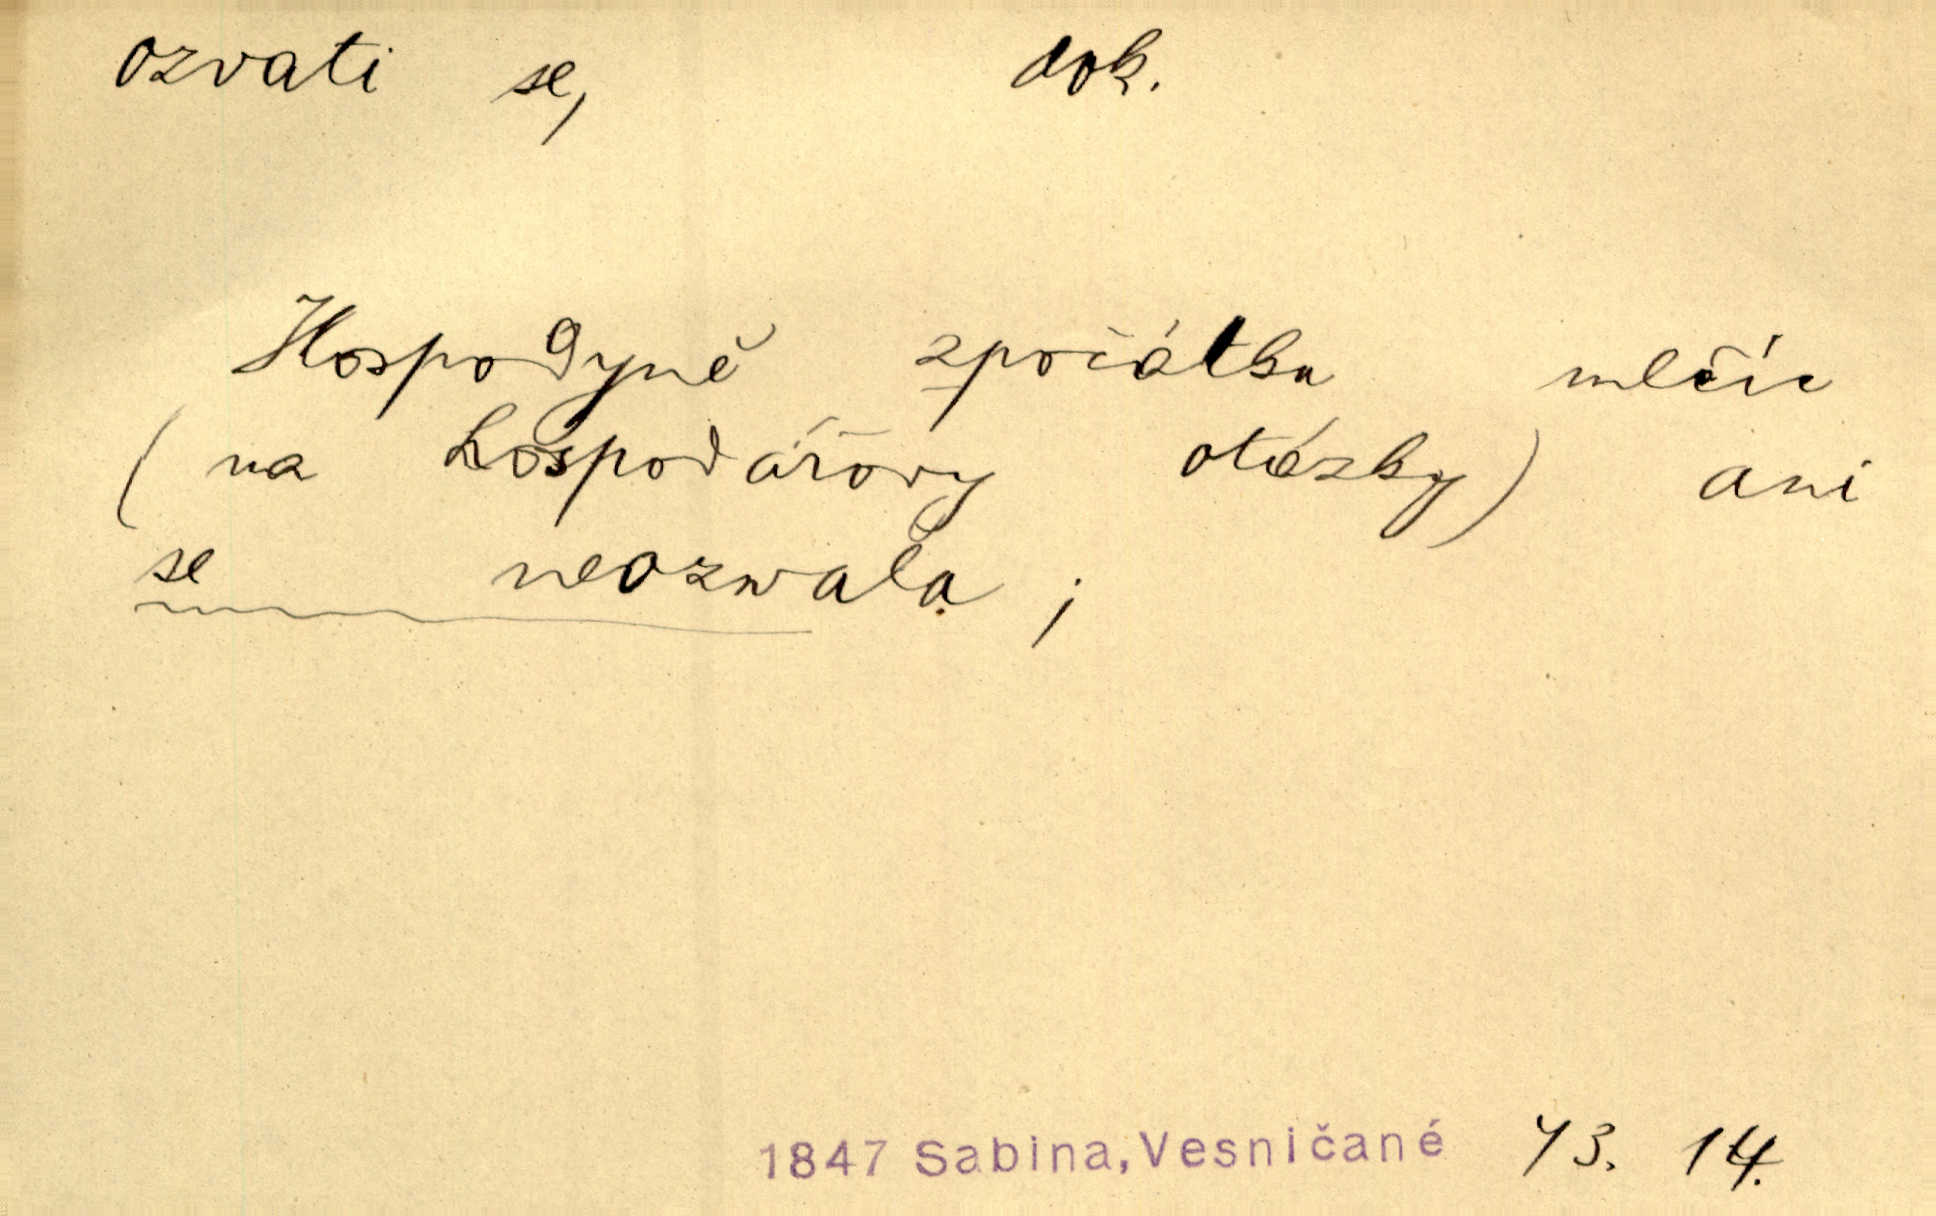 ozvati se, dok.
Hospodyně zpočátku mlčíc
(na hospodářovy otázky) ani
se neozvala;
1847 Sabina, Vesničané 43. 14.